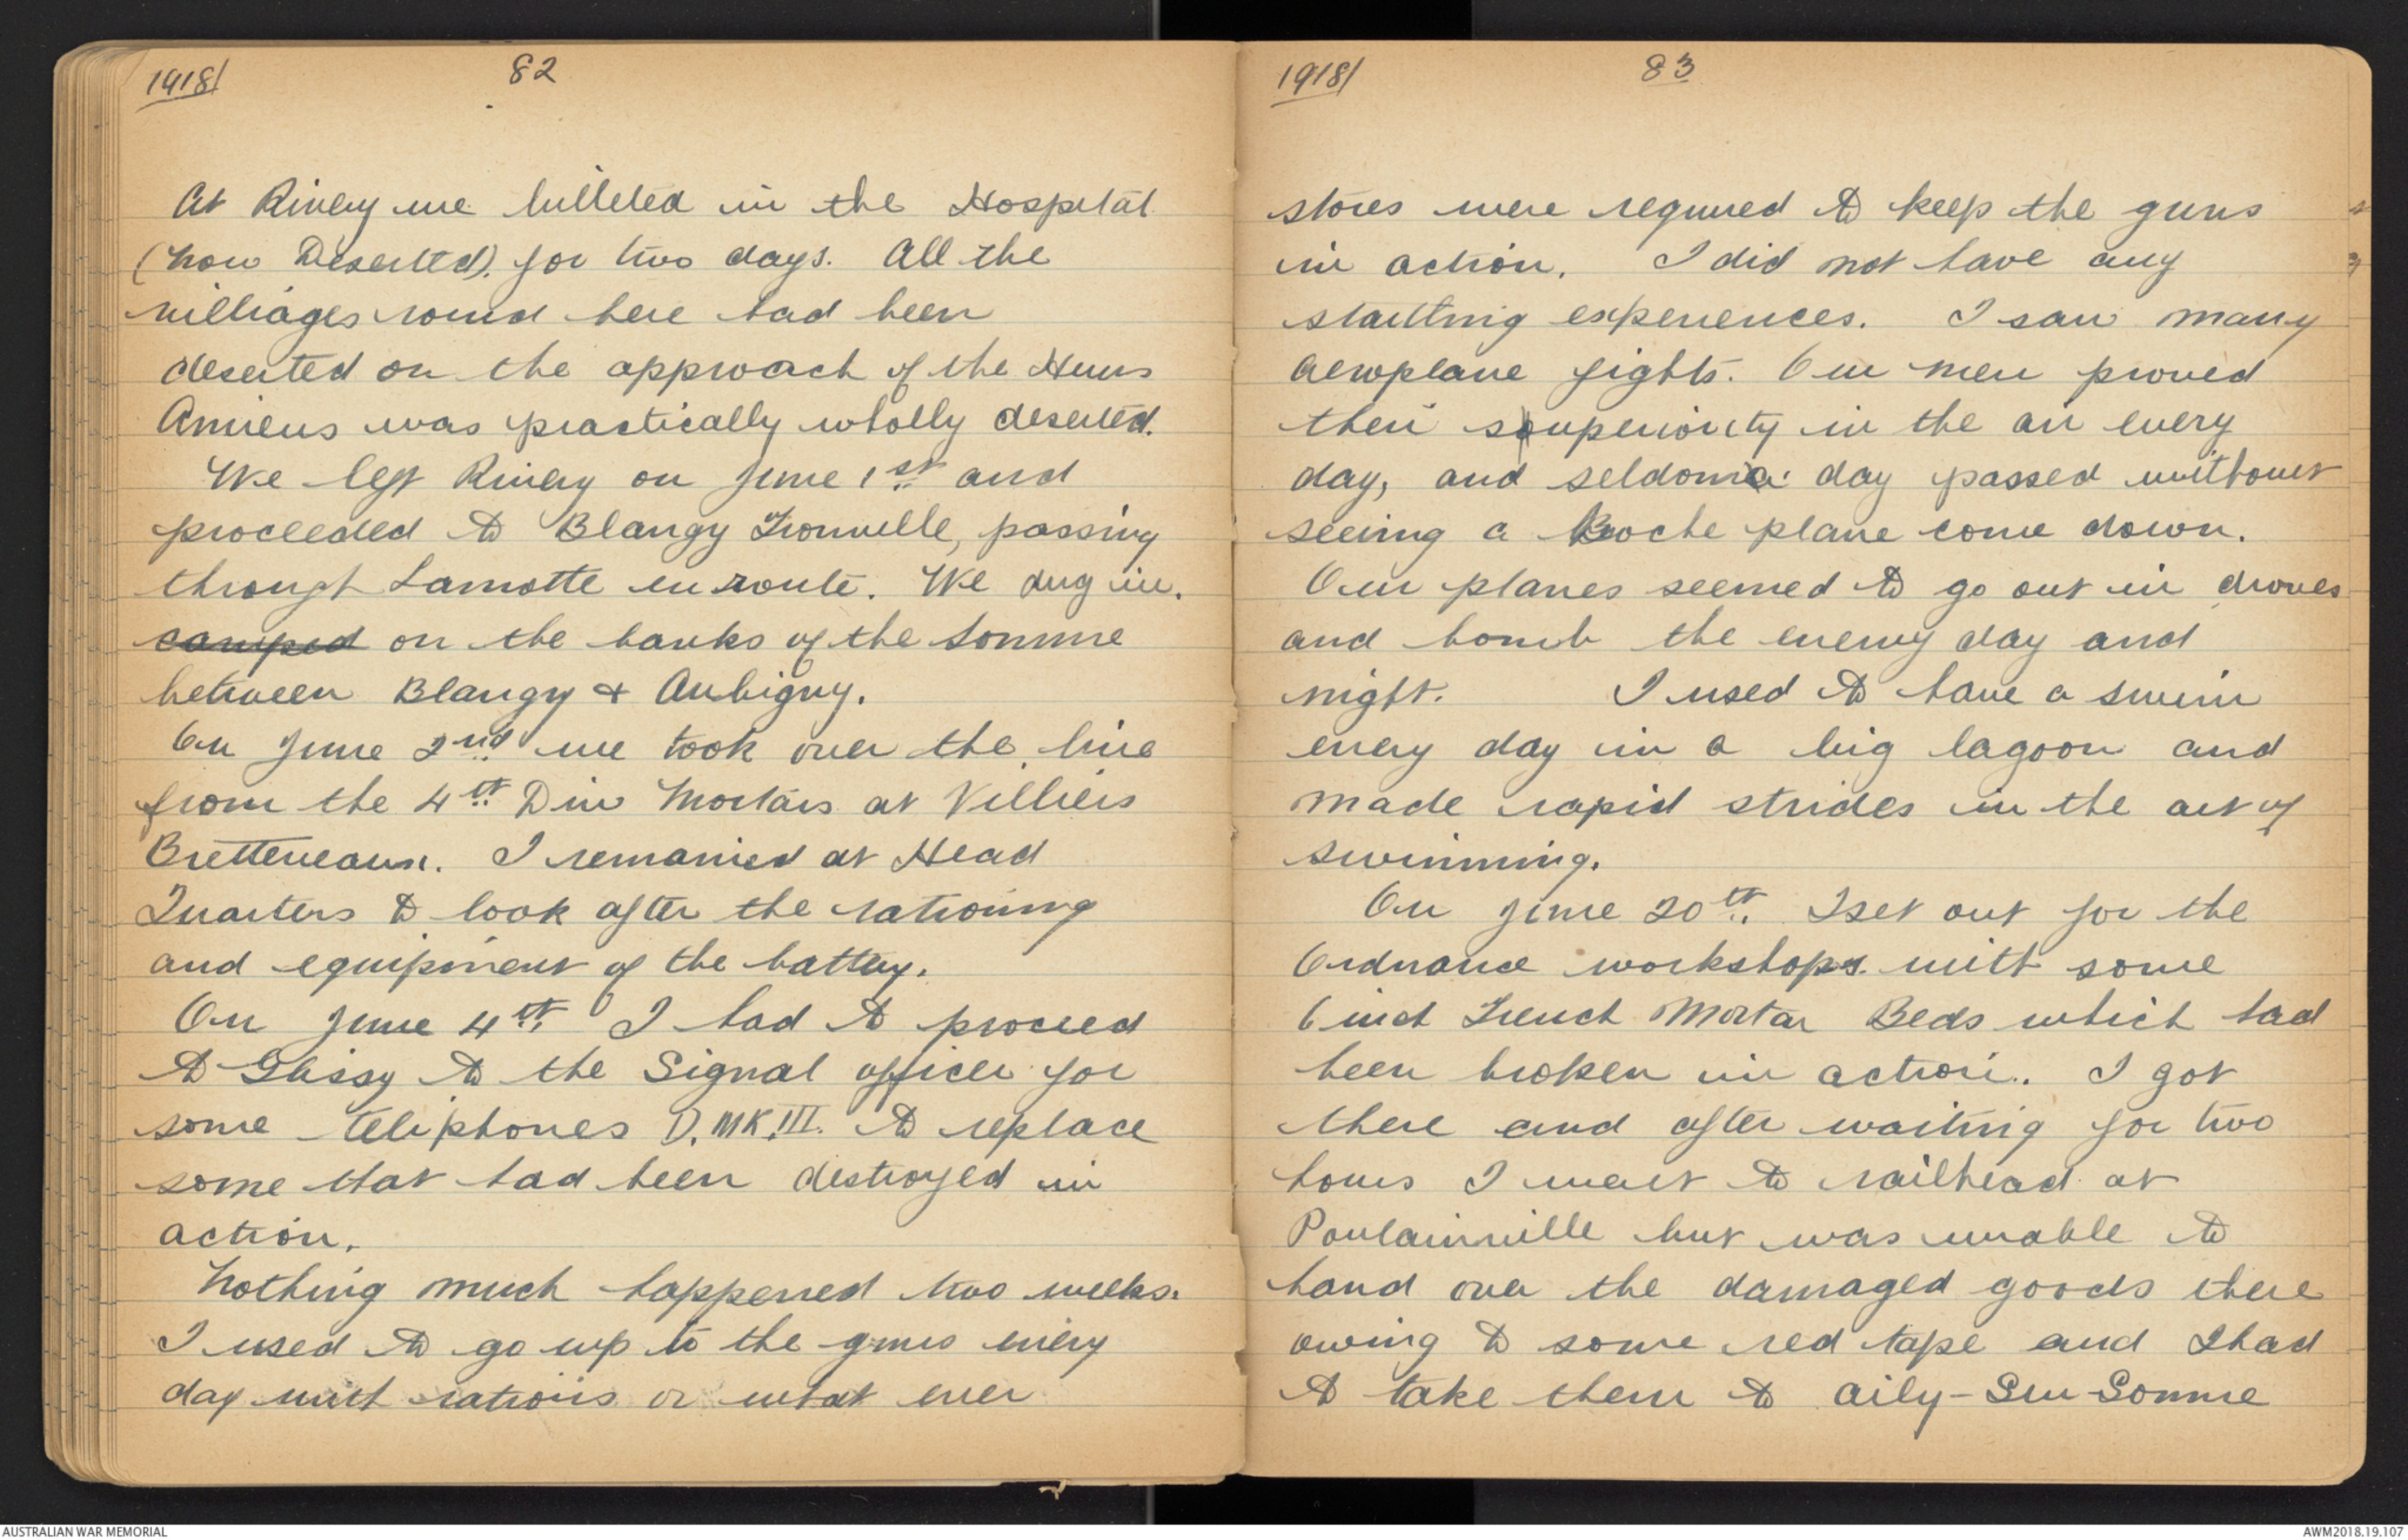 1918/ 82
At Rivery we billeted in the Hospital
(now Deserted). for two days. All the
villiages round here had been
deserted on the approach of the Huns
Amiens was practically wholly deserted.
We left Rivery on June 1st and
proceeded to Blangy Tronville, passing
through Lamotte en route. We dug in.
camped on the banks of the Somme
between Blangy & Aubigny.
On June 2nd we took over the line
from the 4th Div Mortars at Villiers
Bretteneaux. I remained at Head
Quarters to look after the rationing
and equipment of the battery.
On June 4th I had to proceed
to Glissy to the Signal officer for
some teliphones D. MK. III. to replace
some that had been destroyed in
action.
Nothing much happened two weeks.
I used to go up to the guns every
day with rations or what ever
1918/ 83
stores were required to keep the guns
in action. I did not have any
startling experiences. I saw many
aeroplane fights. Our men proved
their superiority in the air every
day, and seldom a day passed without
seeing a Boche plane come down.
Our planes seemed to go out in droves
and bomb the enemy day and
night. I used to have a swim
every day in a big lagoon and
made rapid strides in the art of
swimming.
On June 20th. I set out for the
Ordnance workshops. with some
6 inch Trench Mortar Beds which had
been broken in action. I got
there and after waiting for two
hours I went to railhead at
Poulainville but was unable to
hand over the damaged goods there
owing to some red tape and I had
to take them to Aily-Sur-Somme
AUSTRALIAN WAR MEMORIAL
AWM2018.19.107